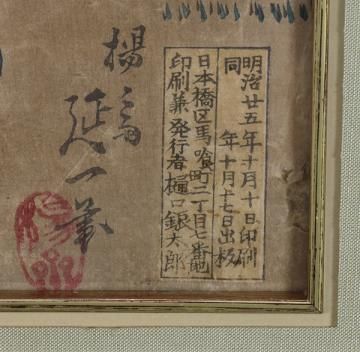 明治廿五年十月十日印刷
同 年十月十七日出板
日本橋区馬喰町二丁目七番地
印刷兼発行者樋口銀太郎
楊斎
延一筆